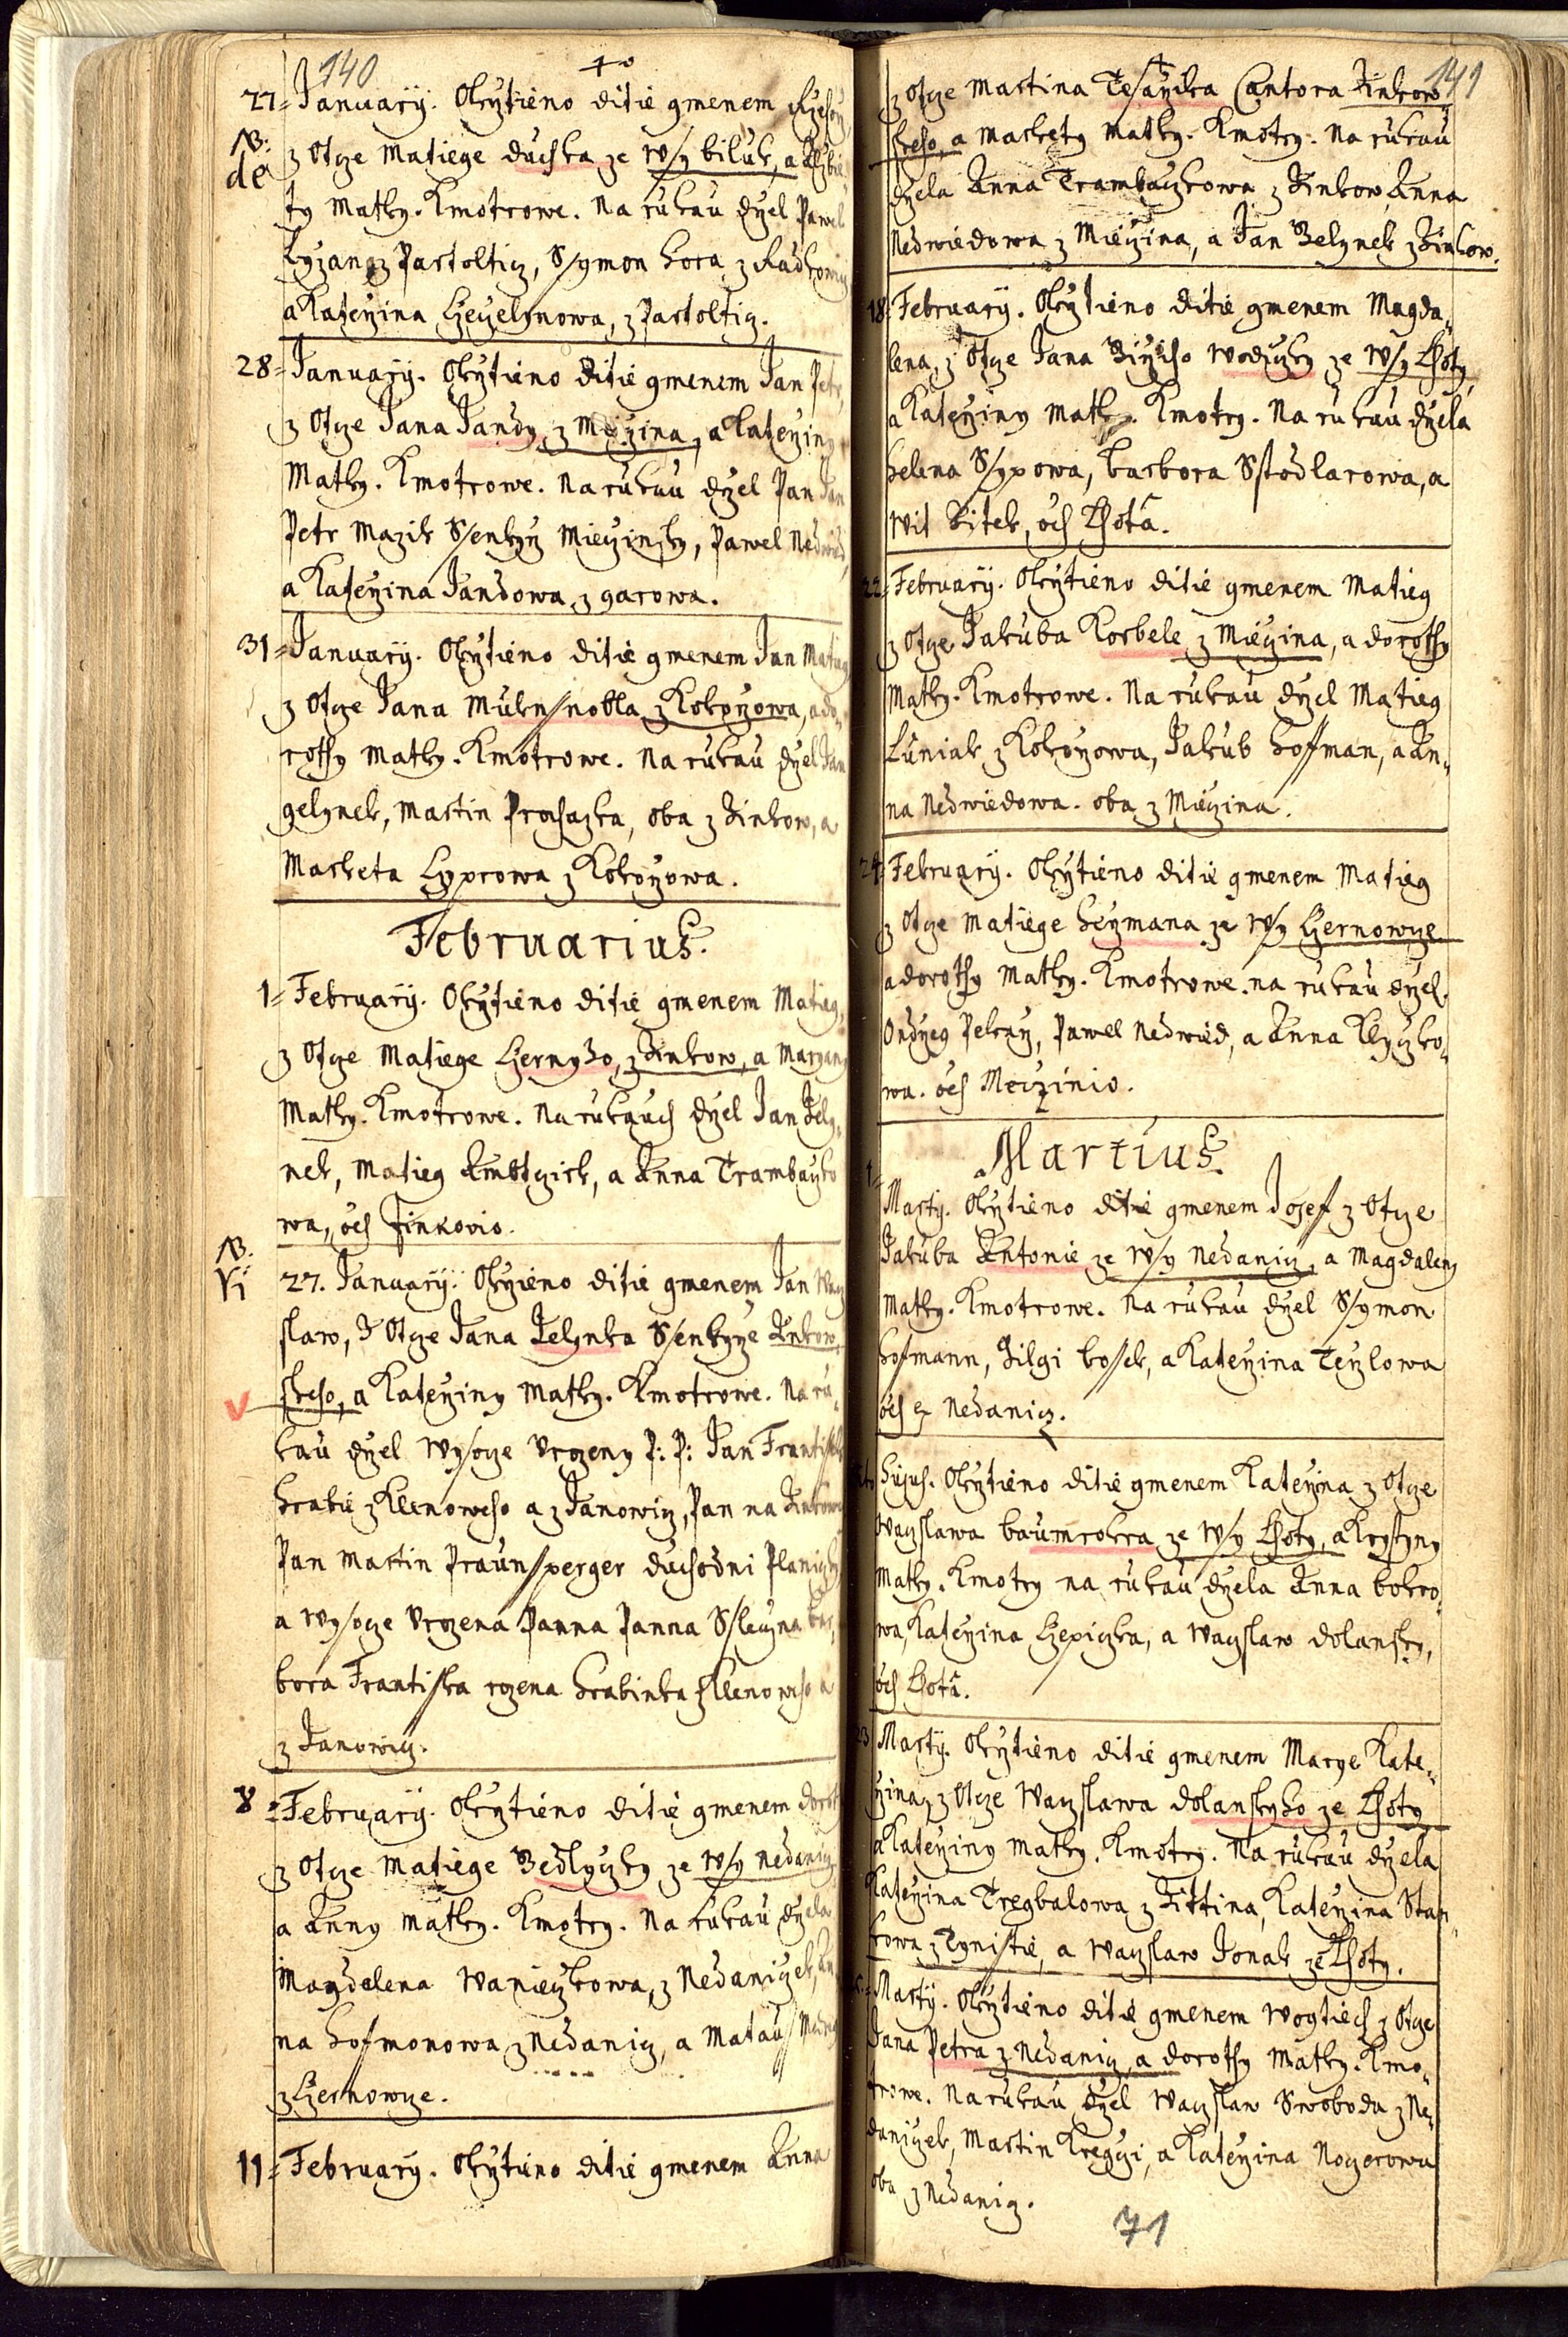 140
27= Januarÿ. Okrztieno ditie gmenem Rzehorz
NB: z Otcze Matiege duchka ze Wsy biluk, a Alzbie
de ty Matky. Kmotrowe. Na rukau drzel Pawel
z Pastolticz, Ssymon hora z Radkowicz
a Katerzina z Pastoltic.
28= Januarÿ. Okrztieno ditie gmenem Jan Petr,
z Otcze Jana Jandy z Mieczina, a Katerziny
Matky. Kmotrowe. Na rukau drzel Pan Jan
Petr Mazik Ssenkyrz Mieczinsky, Pawel Nedwied,
a Katerzina Jandowa, z garowa.
31= Januarÿ. Okrztieno ditie gmenem Jan Matieg
z Otcze Jana z Kokorzowa, a do
rothy Matky. Kmotrowe. Na rukau drzel Jan
gelynek, Martin Prochazka, oba z Zinkow, a
Marketa Cyprowa z Kokorzowa.
Februarius.
1= Februarÿ. Okrztieno ditie gmenem Matieg,
z Otcze Matiege Czernyho, z Zinkow, a Maryany
Matky. Kmotrowe. Na rukauch drzel Jan Zely,,
nek, Matieg, a Anna Trambauko
wa, och Zinkovio.
NB. 27. Januarÿ. Okrzieno ditie gmenem Jan Wacz
Vi slaw, z Otcze Jana Zelynka Ssenkyrze Zinkow,,
skeho, a Katerziny Matky. Kmotrowe. Na ru,,
kau drzel Wysocze Urozeny P: P: Jan Frantissek
hrabie z Klenoweho a z Janowicz, Pan na Zinkowy
Pan Martin Praunsperger duchodni Planiczky
a Wysocze Urozena Panna Panna Sleczna bar,,
bora Frantisska rozena hrabinka z Klenoweho a
z Janowicz.
8 = Februarÿ. Okrztieno ditie gmenem doroth
z Otcze Matiege Zedlyczky ze Wsy Nedanicz
a Anny Matky. Kmotry. Na rukau drzela
Magdalena Wanieczkowa, z Nedaniczek, An
na hofmonowa z Nedanicz, a Matauss
z Czernowcze.
11= Februarÿ. Okrztieno ditie gmenem Anna
141
z Otcze Martina Tesarzika Cantora Zinkow,,
skeho, a Markety Matky. Kmotry. Na rukau
drzela Anna Trambauzkowa z Zinkow, Anna
Nedwiedowa z Mieczina, a Jan Zelynek z Zinkow.
18. Februarÿ. Okrztieno ditie gmenem Magda,,
lena, z Otcze Jana Wodiczky ze Wsy Lhoty,
a Katerziny Matky. Kmotry. Na rukau drzela
helena Ssypowa, barbora Sstodlarowa, a
Wit Zitek, och Lhota.
22= Februarÿ. Okrztieno ditie gmenem Matieg
z Otcze Jakuba Korbele z Mieczina, a dorothy
Matky. Kmotrowe. Na rukau drzel Matieg
Luniak z Kokorzowa, Jakub hoffman, a An,,
na Nedwiedowa. oba z Mieczina.
24= Februarÿ. Okrztieno ditie gmenem Matieg
z Otcze Matiege heymana ze Wsy Czernowcze
a dorothy Matky. Kmotrowe. na rukau drzel
Ondrzeg Pekarz, Pawel Nedwied, a Anna Klyczko,,
wa. och Meczinio.
Martius.
1= Martÿ. Okrztieno ditie gmenem Josef z Otcze
Jakuba Antonie ze Wsy Nedanicz, a Magdaleny
Matky. Kmotrowe. Na rukau drzel Ssymon
hofmann, Zilgi bossek, a Katerzina Teyzlowa
och z Nedanicz.
hujus. Okrztieno ditie gmenem Katerzina z Otcze
Waczslawa baumrokra ze Wsy Lhoty, a Krystyny
Matky. Kmotry na rukau drzela Anna bokro,,
wa, Katerzina Czepiczka, a Waczslaw dolansky,
och Lhota.
23 Martÿ. Okrztieno ditie gmenem Marye Kate,,
rzina, z Otcze Waczslawa dolanskyho ze Lhoty
a Katerziny Matky. Kmotry. Na rukau drzela
Katerzina Tregbalowa z Zittina, Katerzina Stan,,
kowa z Tynisstie, a Waczslaw Jonak ze Lhoty.
Martÿ. Okrztieno ditie gmenem Wogtiech z Otcze
Jana Petra z Nedanicz, a dorothy Matky. Kmo,,
trowe. Na rukau drzel Waczslaw Swoboda z Ne,,
daniczek, Martin Kregczi, a Katerzina Nogerowa
oba z Nedanicz.
71